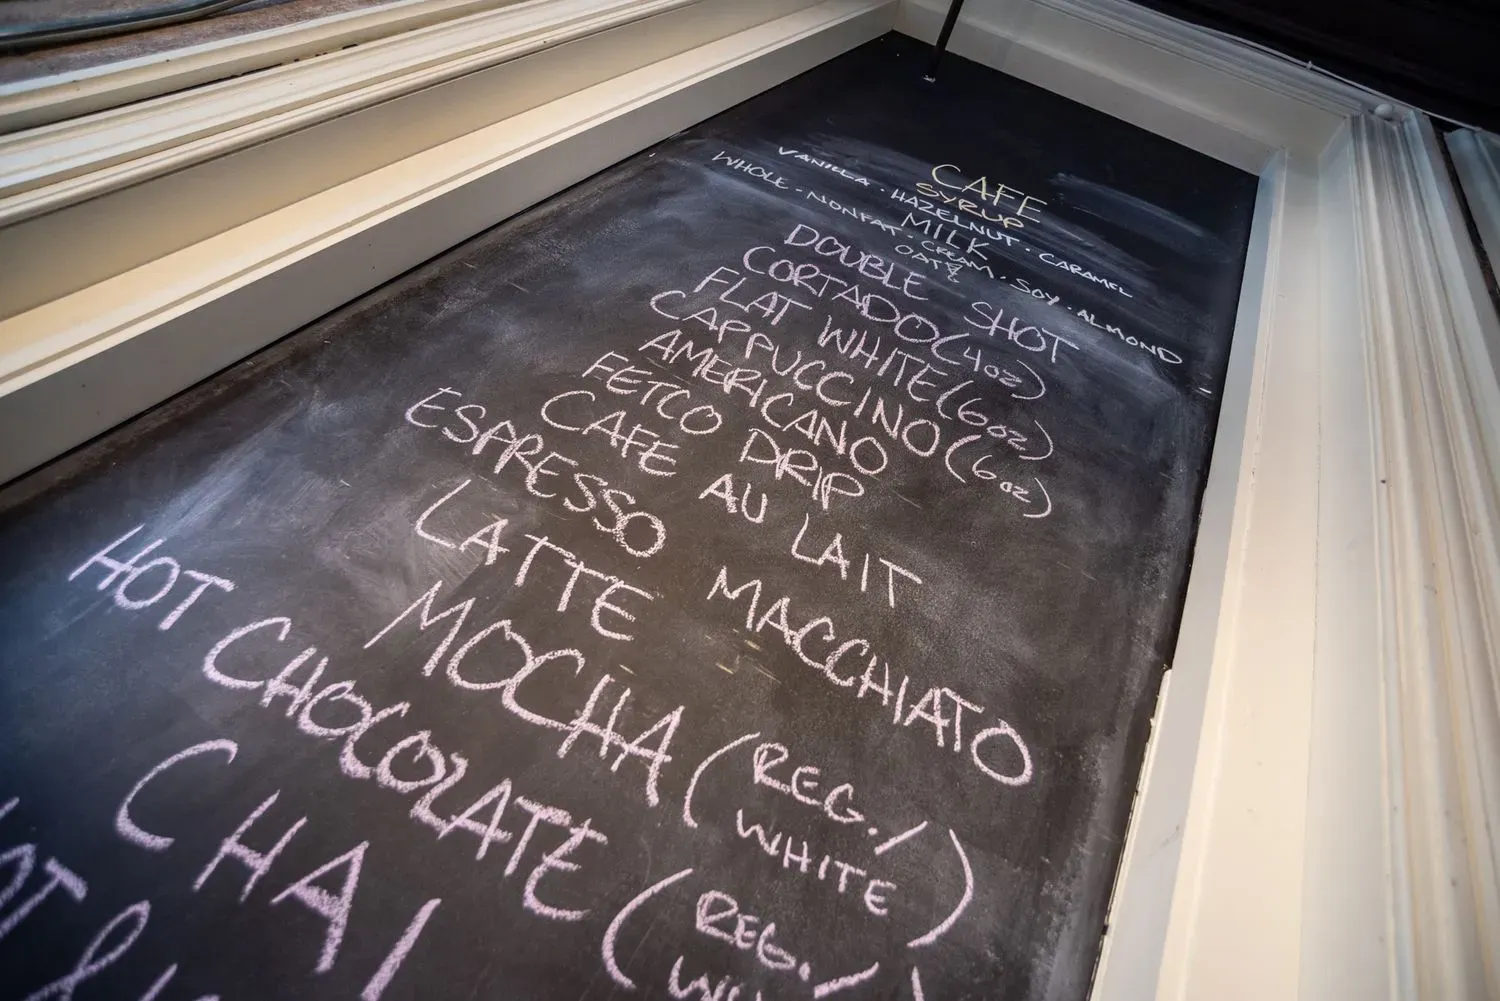 CAFE
SYRUP
VANILLA . HAZELNUT . CARAMEL
MILK
WHOLE . NONFAT . CREAM . SOY . ALMOND
OAT
DOUBLE SHOT
CORTADO (4oz)
FLAT WHITE (6oz)
CAPPUCCINO (6oz)
AMERICANO
FETCO DRIP
CAFE AU LAIT
ESPRESSO MACCHIATO
LATTE
MOCHA (REG./
WHITE)
HOT CHOCOLATE (REG./
CHAI